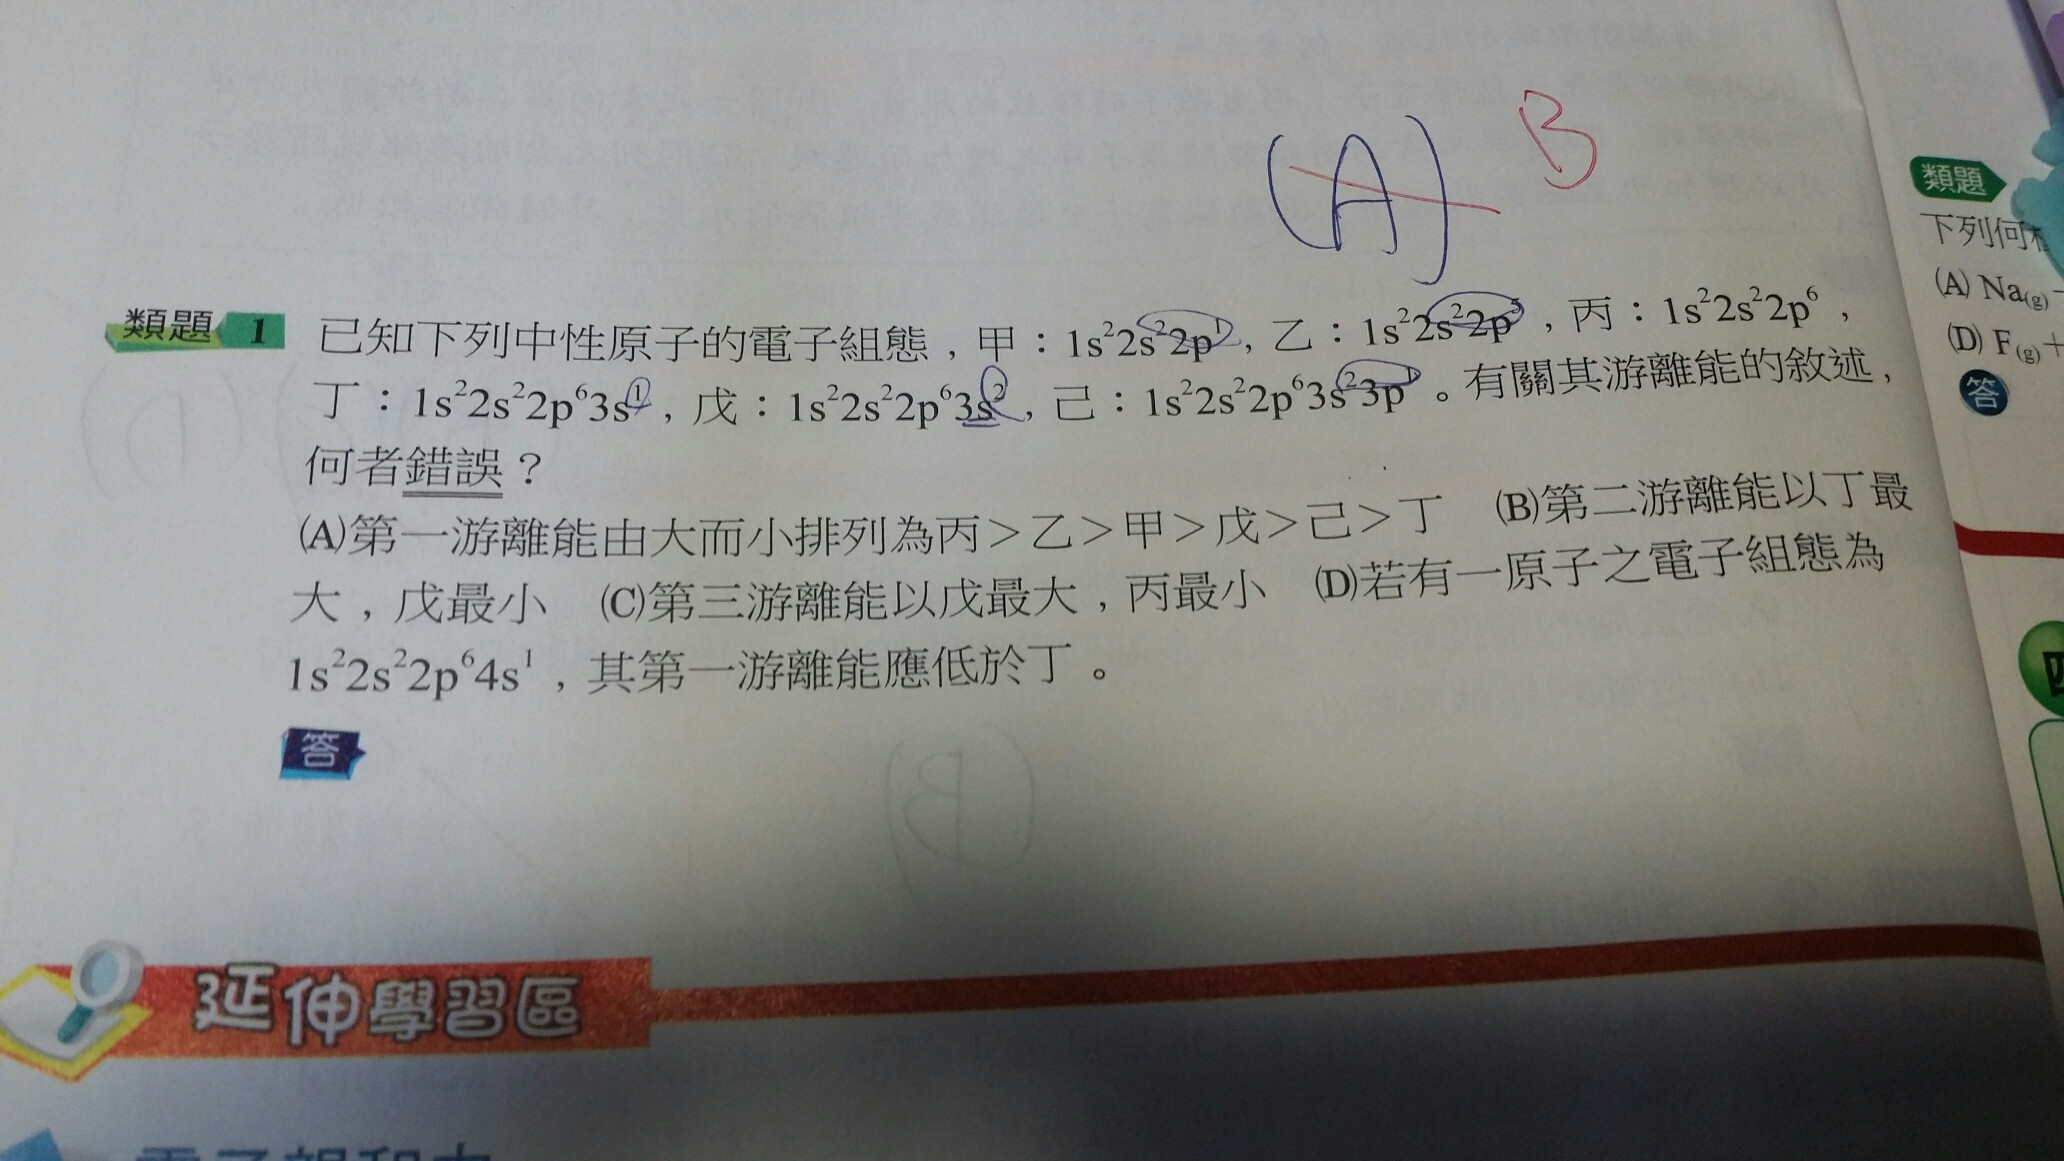 (A) B
類題
下列何
(A) Na(g)
(D) F(g)+
答
類題 1 已知下列中性原子的電子組態，甲：1s²2s²2p¹，乙：1s²2s²2p⁵，丙：1s²2s²2p⁶，
丁：1s²2s²2p⁶3s¹，戊：1s²2s²2p⁶3s²，己：1s²2s²2p⁶3s²3p¹。有關其游離能的敘述，
何者錯誤？
(A)第一游離能由大而小排列為丙＞乙＞甲＞戊＞己＞丁 (B)第二游離能以丁最
大，戊最小 (C)第三游離能以戊最大，丙最小 (D)若有一原子之電子組態為
1s²2s²2p⁶4s¹，其第一游離能應低於丁。
答
延伸學習區